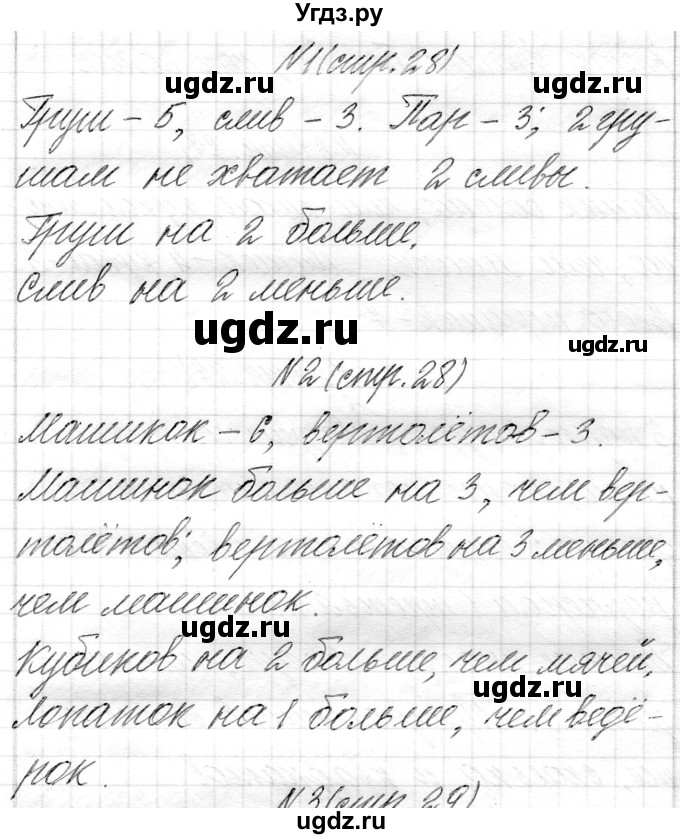 Угдз.ру
N1(стр.28)
ugdz.ru ugdz.ru
Груш - 5, слив - 3. Пар - 3; 2 гру-
шам не хватает 2 сливы.
Груш на 2 больше,
слив на 2 меньше.
ugdz.ru ugdz.ru
N2(стр.28)
Машикок - 6, вертолётов - 3.
Машинок больше на 3, чем вер-
толётов; вертолётов на 3 меньше,
чем машинок.
ugdz.ru
Кубиков на 2 больше, чем мячей,
ugdz.ru
Лопаток на 1 больше, чем ведё-
рок.
N3(стр.29)
ugdz.ru